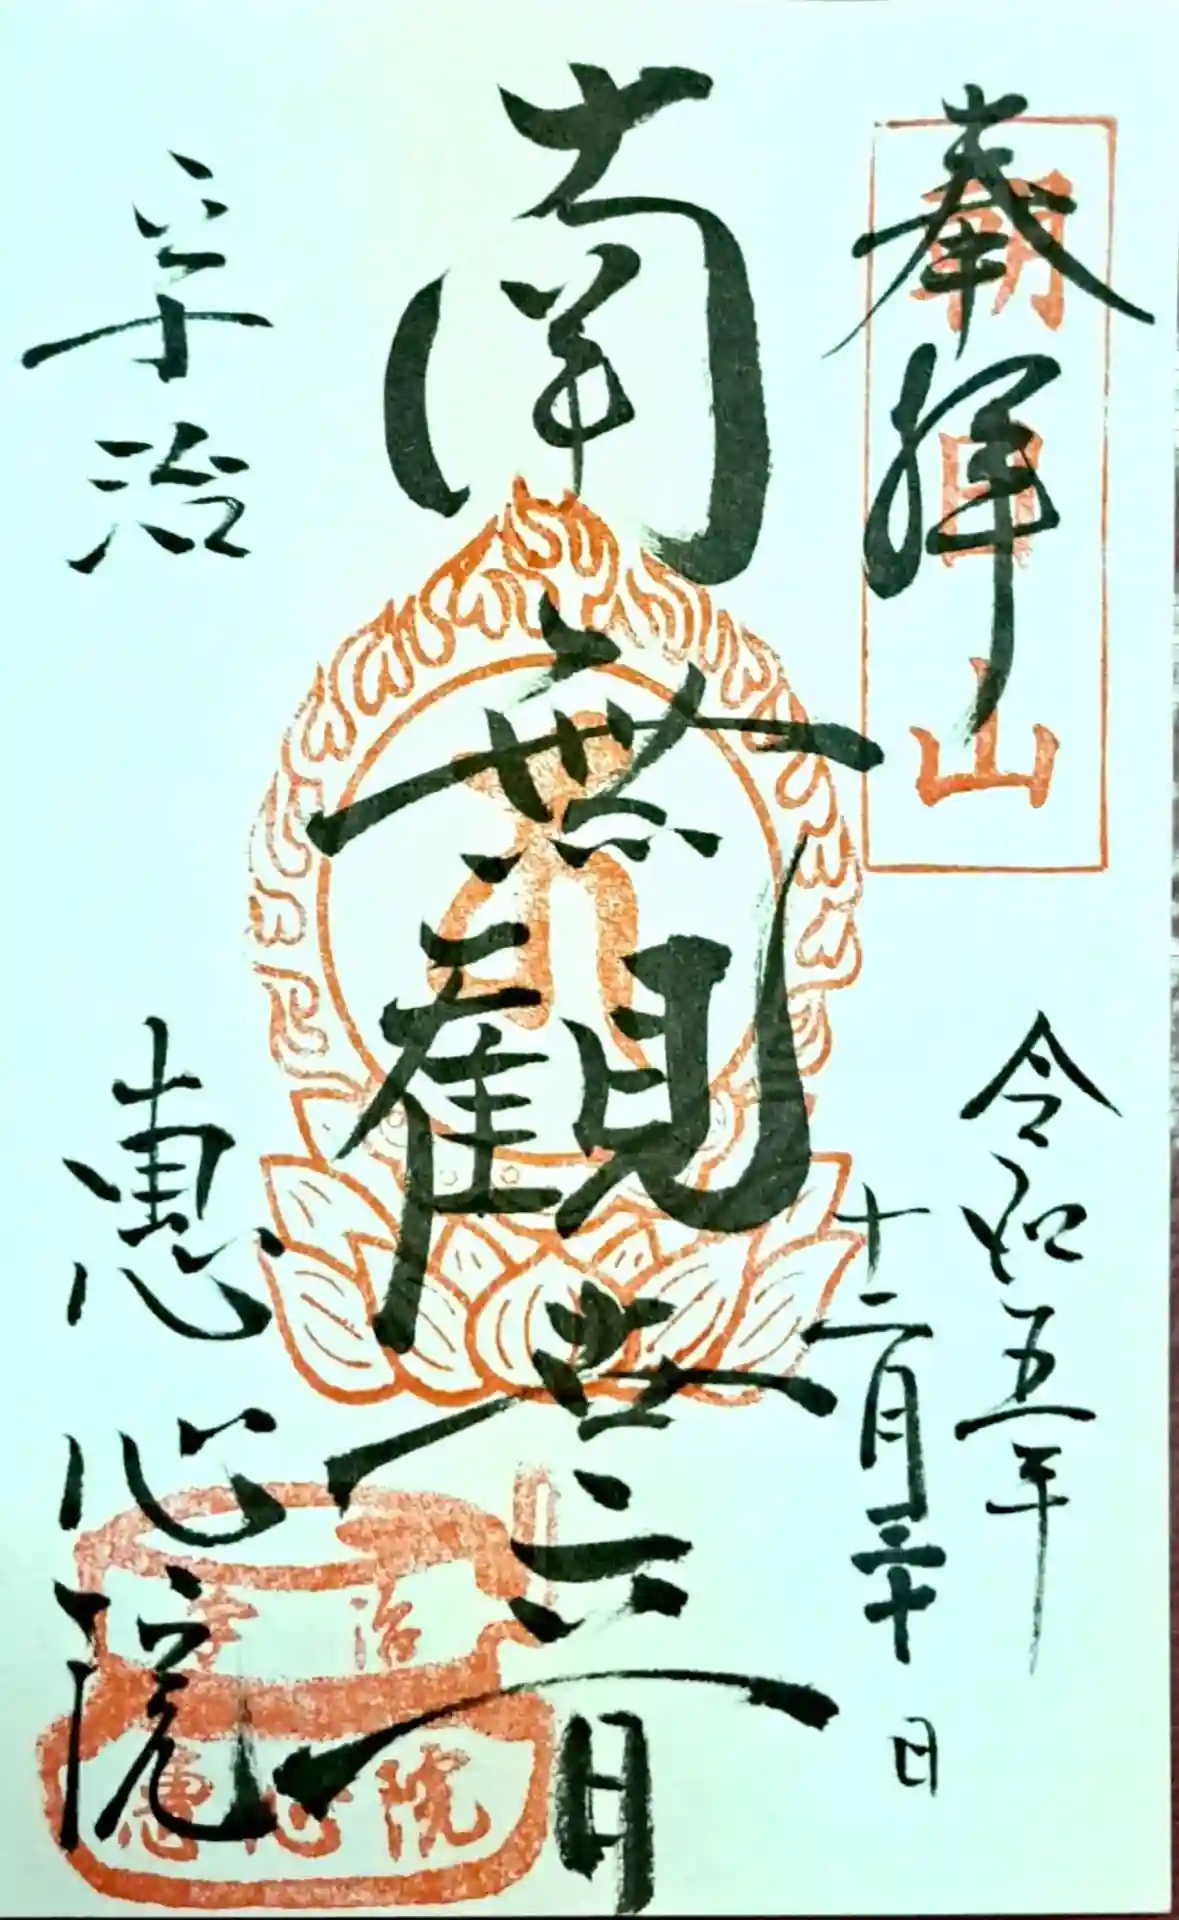 奉拝
朝日山
令和五年
十二月三十日
南無観世音
宇治
惠心院
宇治
惠心院